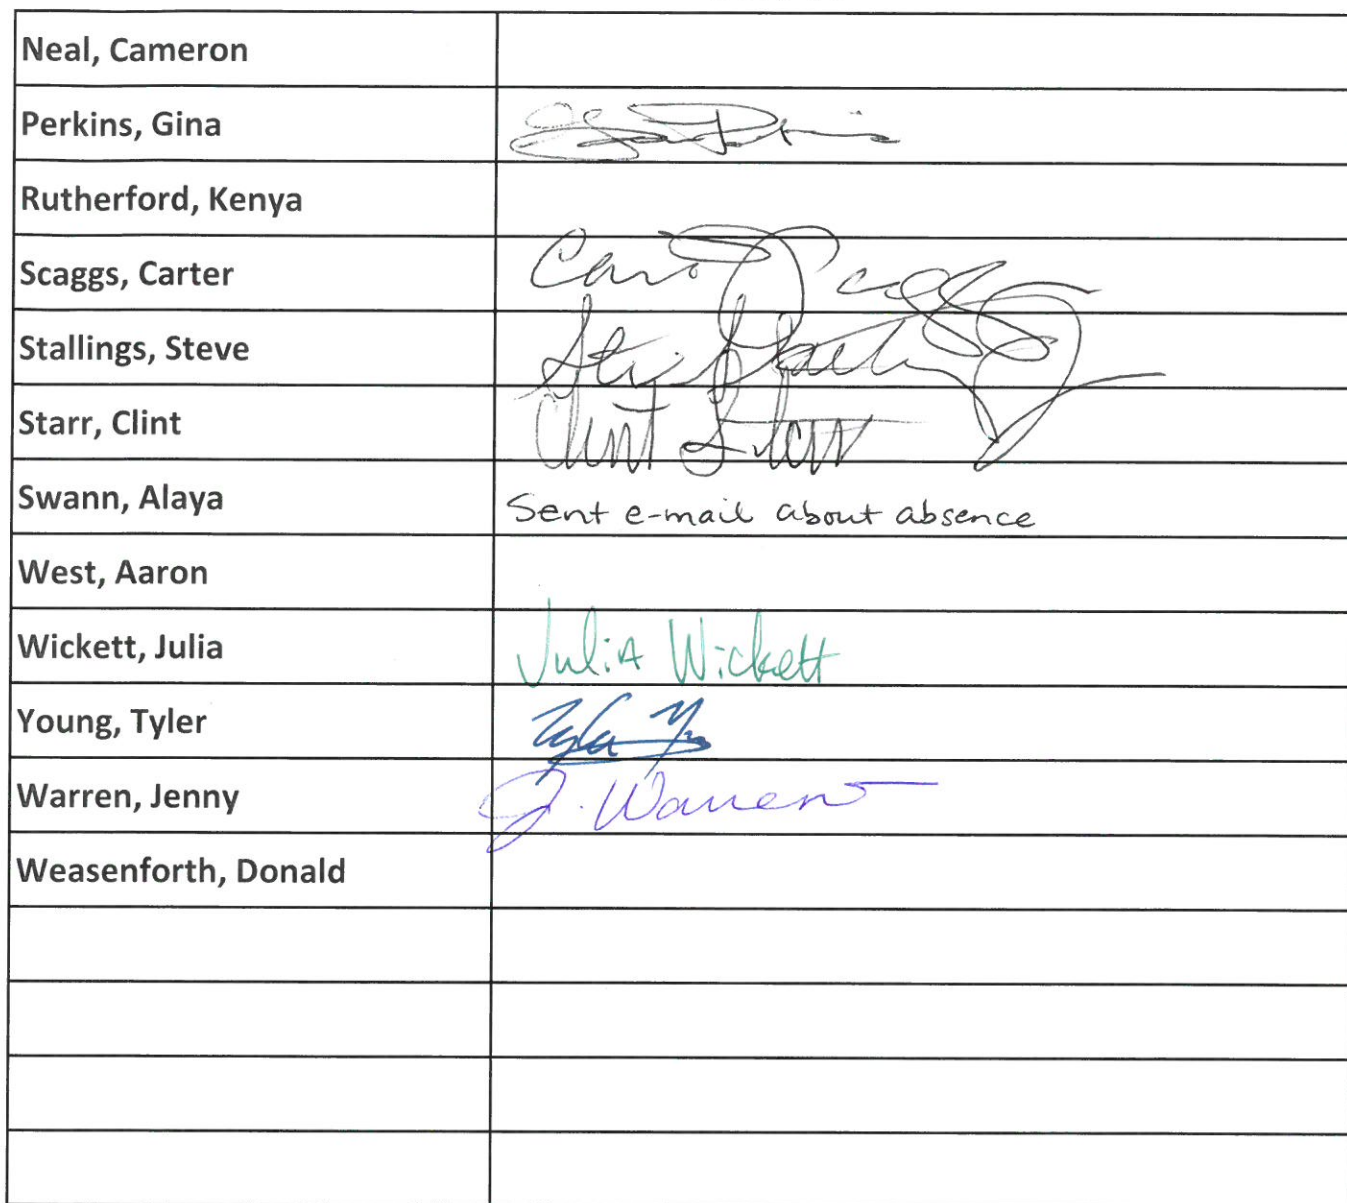 Neal, Cameron
Perkins, Gina
Rutherford, Kenya
Scaggs, Carter
Stallings, Steve
Starr, Clint Clint Starr
Swann, Alaya Sent e-mail about absence
West, Aaron
Wickett, Julia Julia Wickett
Young, Tyler
Warren, Jenny J. Warren
Weasenforth, Donald